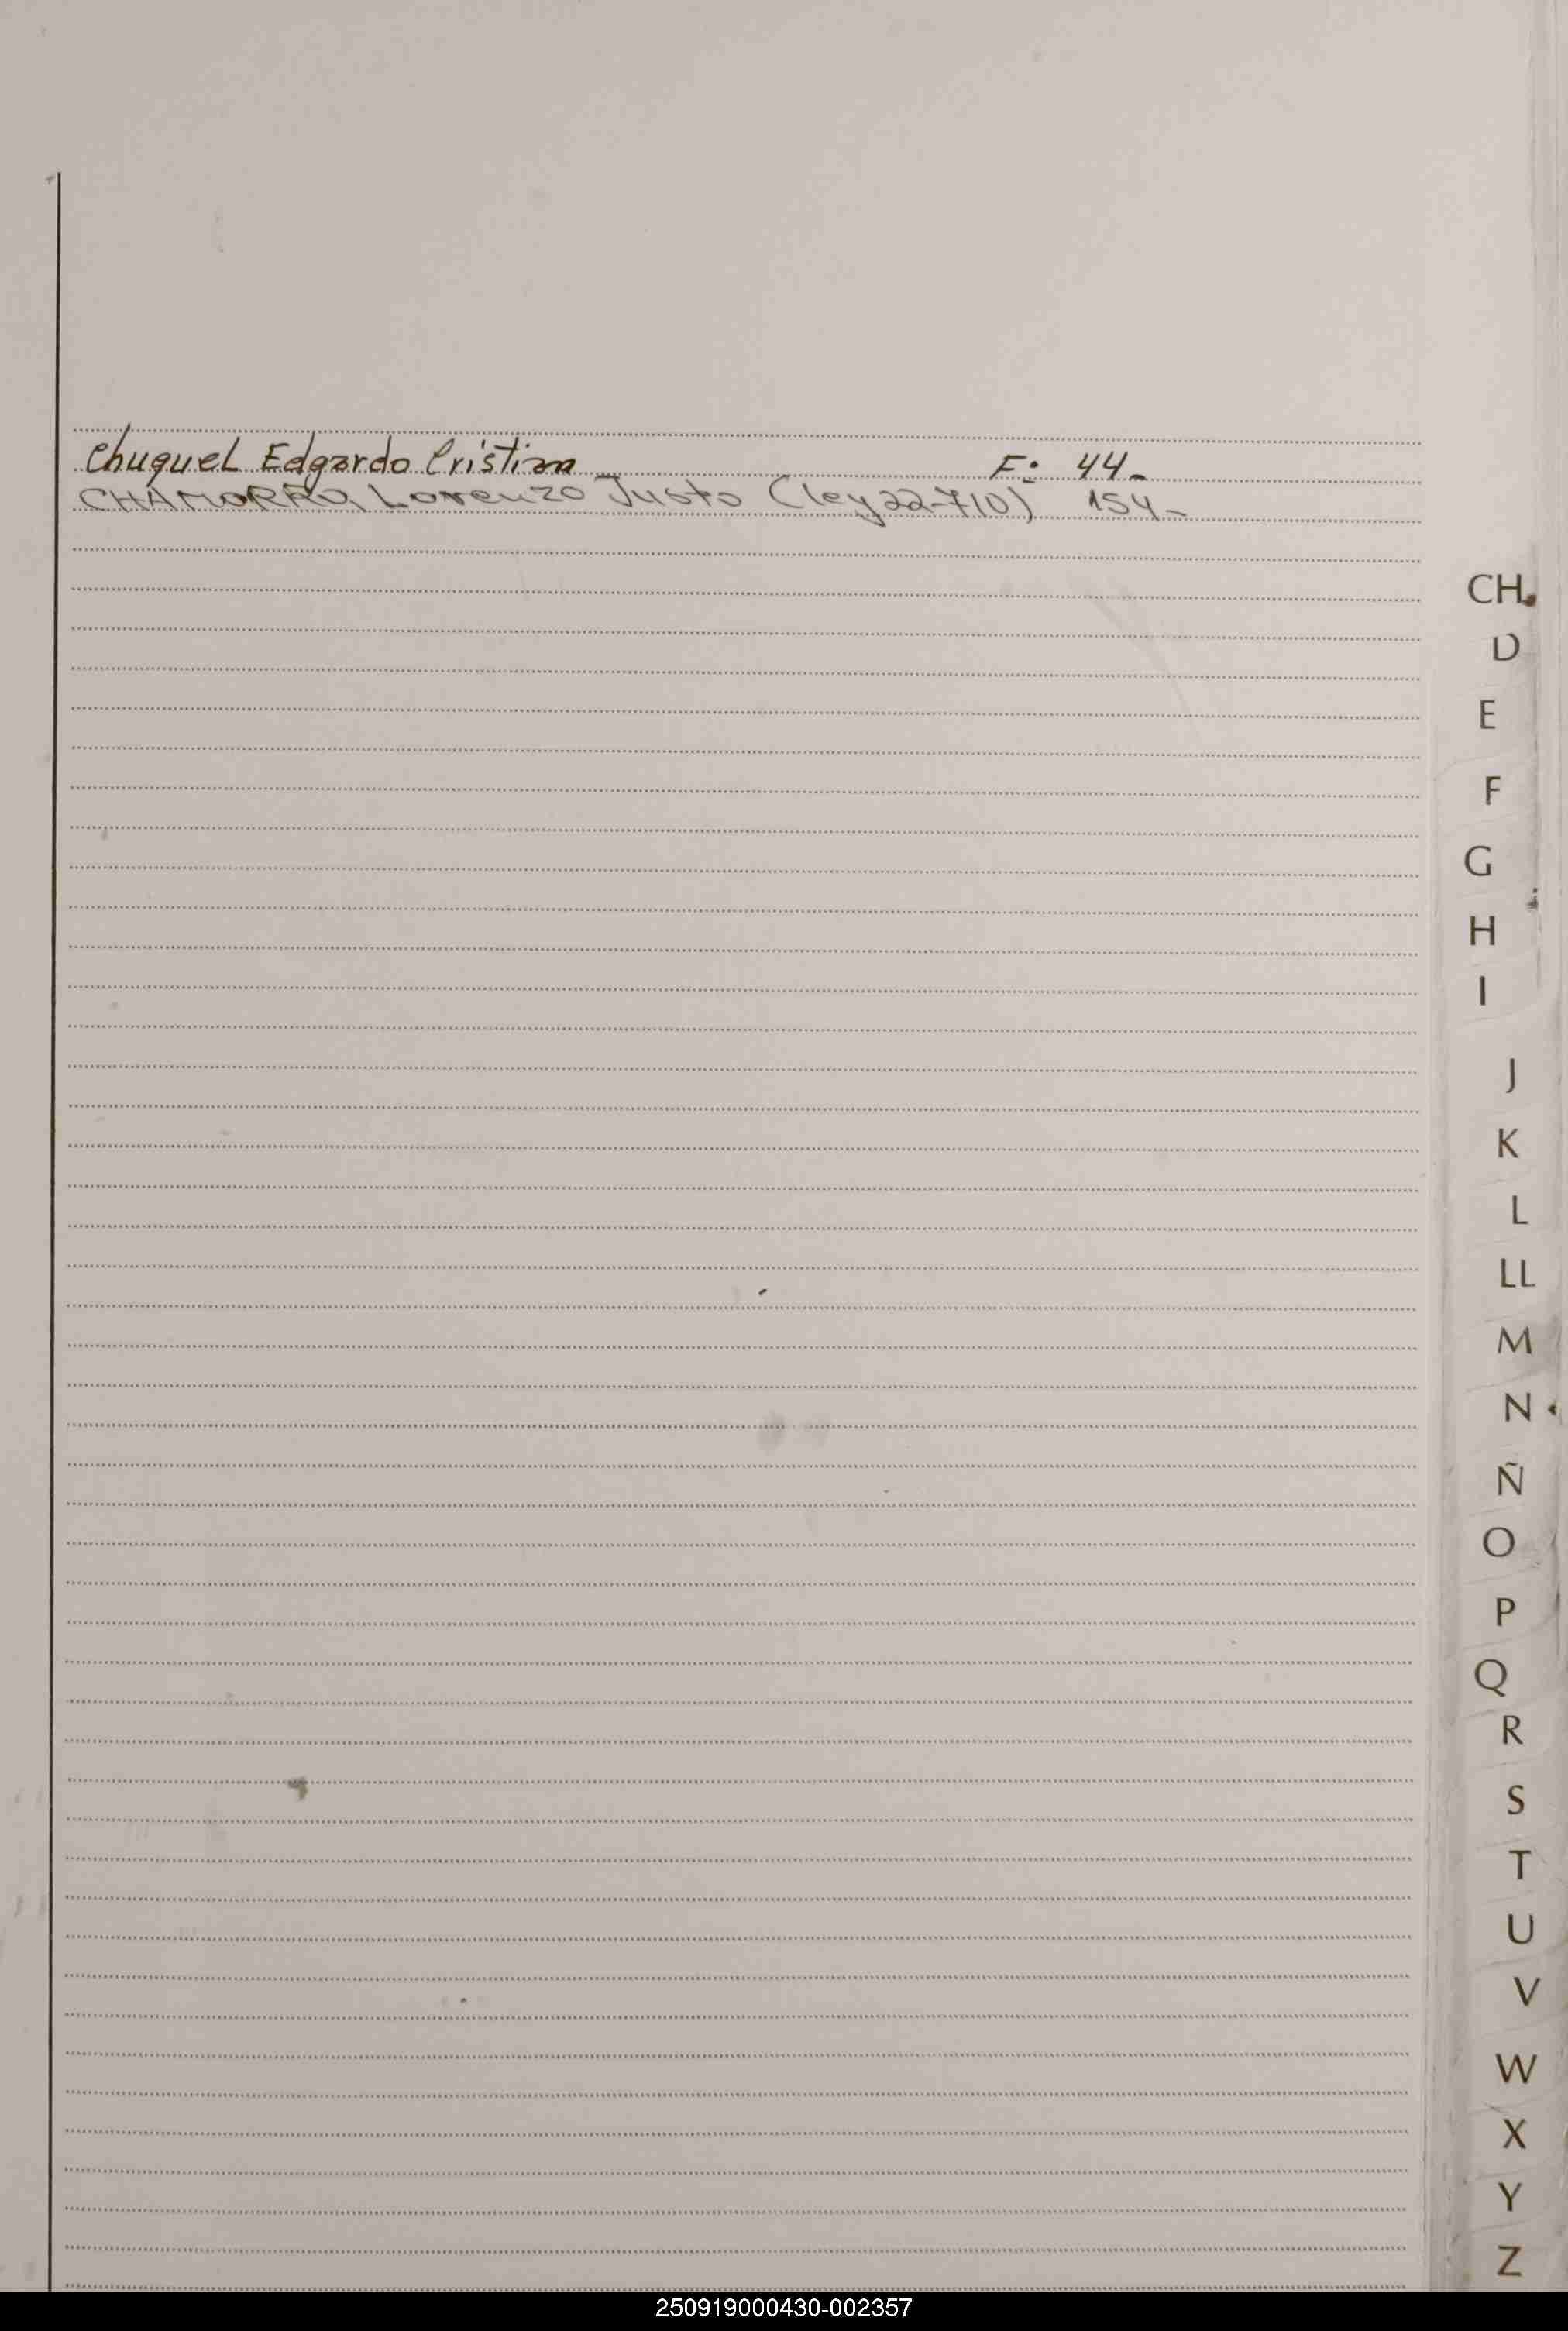 Chuquel Edgardo Cristian F: 44-
CHAMORRO, Lorenzo Justo (ley 22-710) 154-
CH
D
E
F
G
H
I
J
K
L
LL
M
N
Ñ
O
P
Q
R
S
T
U
V
W
X
Y
Z
250919000430-002357